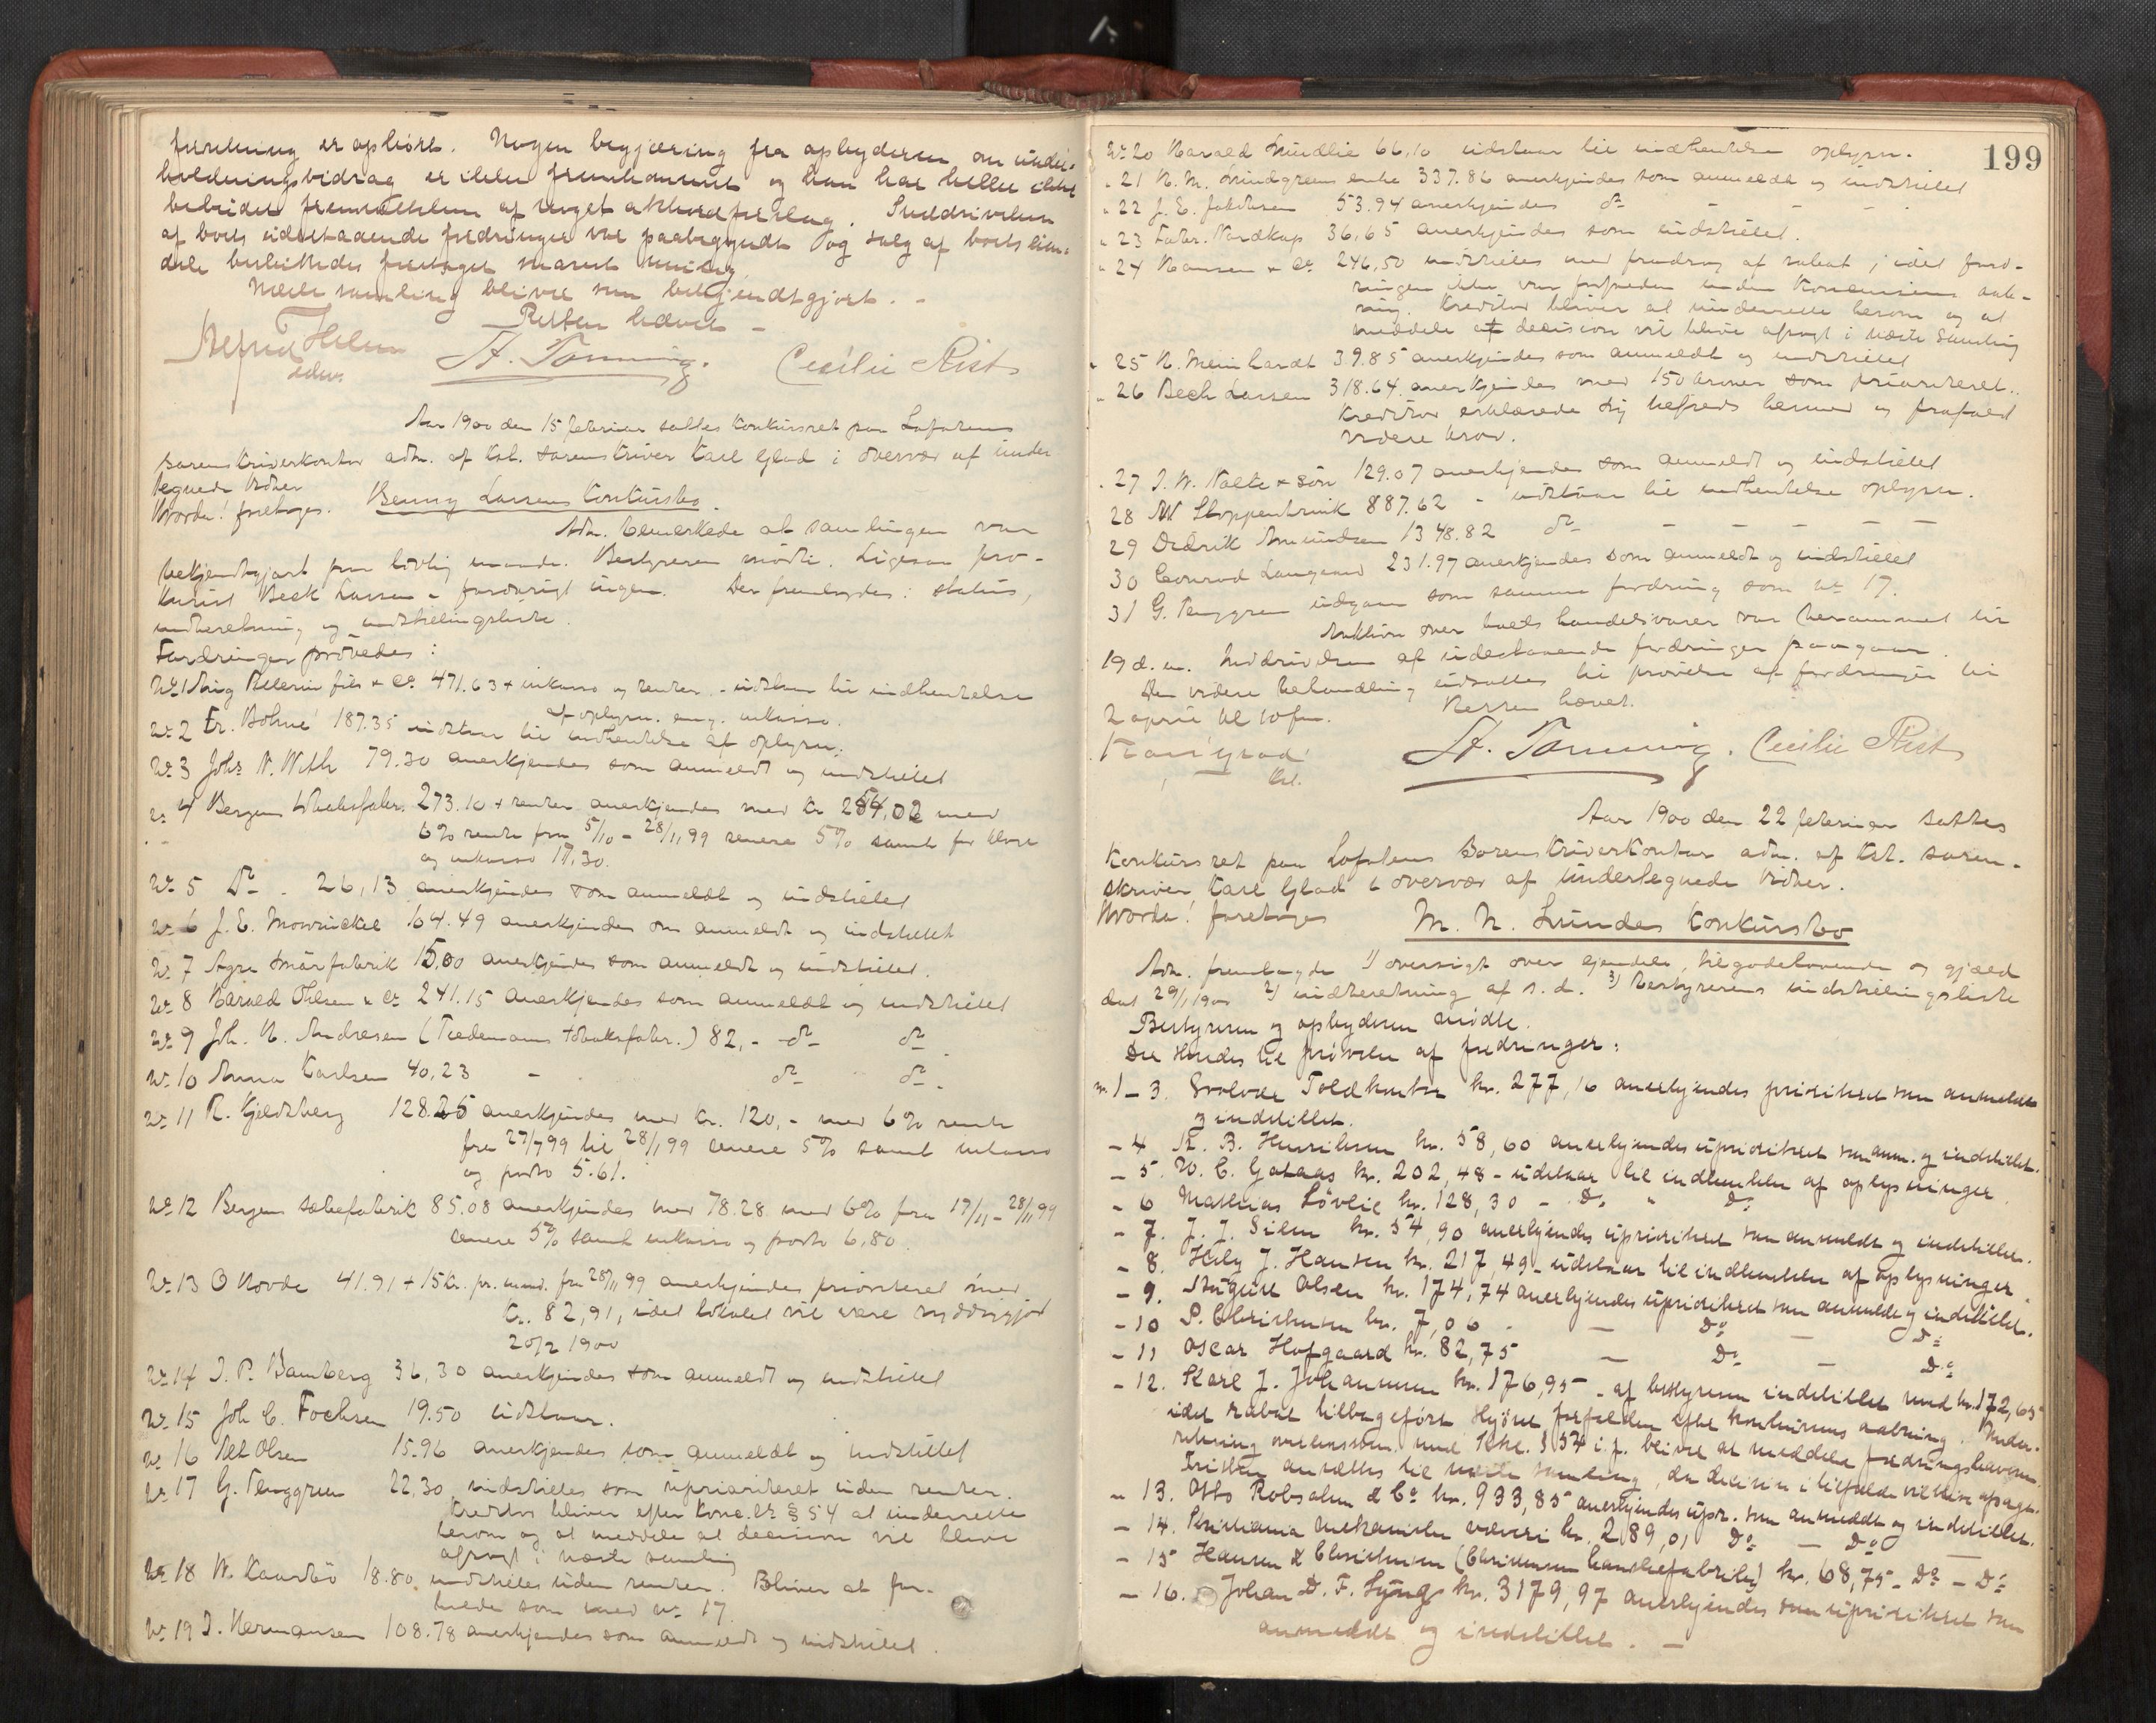 forretning er ophørt. Nogen begjæring fra opbyderen om under-
holdningsbidrag er ikke fremkommet og han har heller ikke
bebudet fremsættelsen af noget akkordforslag. Inddrivelsen
af boets udestaaende fordringer var paabegyndt og salg af boets eien-
dele besluttedes foretaget snarest mulig.
Næste samling bliver som bekjendtgjort. -
Retten hævet -
Alfred Holm
A. Tønning. Cecilie Rist
Aar 1900 den 15 februar sattes konkursret paa Lofotens
sorenskriverkontor adm. af kst. sorenskriver Kare Glad i overvær af under
tegnede vidner
Hvorda! foretoges. Benny Larsens konkursbo.
Adm. bemerkede at samlingen var
bekjendtgjort paa lovlig maade. Bestyreren mødte. Ligesaa pro-
kurist Beck Larsen - forøvrigt ingen. Der fremlagdes: status,
indberetning og indstillingsliste.
Fordringer prøvedes:
No 1 Aug Pellerin fils & Co. 471.63 + inkasso og renter - udstaar til indhentelse
af oplysn. ang. inkasso.
No 2 Fr. Bohne 187.35 udstaar til indhentelse af oplysn.
No 3 Johs N. With 79.30 anerkjendes som anmeldt og indstillet
No 4 Bergens tobaksfabr. 273.10 + renter anerkjendes med kr 254,02 med
6% rente fra 5/10 - 28/11 99 senere 5% samt for klage
og inkasso 17,30.
No 5 Do - 26,13 anerkjendes som anmeldt og indstillet
No 6 J. E. Mowinckel 164.49 anerkjendes som anmeldt og indstillet
No 7 Agra Smørfabrik 15,00 anerkjendes som anmeldt og indstillet.
No 8 Harald Ohlsen & Co 241.15 anerkjendes som anmeldt og indstillet
No 9 Joh. H. Andresen (Tiedemans tobaksfabr.) 82,- do do
No 10 Anna Karlsen 40,23 - do do.
No 11 R. Kjeldsberg 128.25 anerkjendes med kr. 120,- med 6% rente
fra 27/7 99 til 28/11 99 senere 5% samt inkasso
og porto 5.61.
No 12 Bergens sæbefabrik 85.08 anerkjendes med 78.28 med 6% fra 17/11 - 28/11 99
senere 5% samt inkasso og porto 6,80.
No 13 O Hovde 41.91 + 15 kr. pr. mnd. fra 28/11 99 anerkjendes prioriteret med
kr. 82,91, idet lokalet vil være ryddiggjort
20/2 1900
No 14 J. P. Bamberg 36,30 anerkjendes som anmeldt og indstillet
No 15 Joh C. Fochsen 19.50 udstaar.
No 16 Olsen 15.96 anerkjendes som anmeldt og indstillet
No 17 G. Tenggren 22,30 indstilles som uprioriteret uden renter.
Kreditor bliver efter konc. lov § 54 at underrette
herom og at meddele at decision vil blive
afsagt i næste samling
No 18 W. Kaarbø 18.80 indstilles uden renter. Bliver at for-
holde som med No 17.
No 19 J. Hermansen 108.78 anerkjendes som anmeldt og indstillet.
199
No 20 Harald Lindlie 66.10 udstaar til indhentelse oplysn.
" 21 N. M. Lindgreens enke 337.86 anerkjendes som anmeldt og indstillet
" 22 J. E. Jakobsen 53.94 anerkjendes do - - -
" 23 Fabr. Nordkap 36,65 anerkjendes som indstillet.
" 24 Hansen & Co 246,50 indstilles med fradrag af rabat, idet ford-
ringen ikke var forfalden inden konkursens aab-
ning. Kreditor bliver at underrette herom og at
meddele at decision vil blive afsagt i næste samling
" 25 N. Meinhardt 39.85 anerkjendes som anmeldt og indstillet
" 26 Beck Larsen 318.64 anerkjendes med 150 kroner som prioriteret.
Kreditor erklærede sig tilfreds hermed og frafaldt
videre krav.
" 27 J. W. Nolte & søn 129.07 anerkjendes som anmeldt og indstillet
28 Stoppenbrink 887.62 - udstaar til indhentelse oplysn.
29 Didrik Amundsen 1348.82 do - - - -
30 Conrad Langaard 231.97 anerkjendes som anmeldt og indstillet
31 G. Tenggren udgaar som samme fordring som No 17.
Auktion over boets handelsvarer var berammet til
19 d. m. Inddrivelsen af udestaaende fordringer paagaar.
Den videre behandling udsattes til prøvelse af fordringer til
2 april kl 10 fm. Retten hævet.
Kare Glad
kst.
A. Tønning. Cecilie Rist
Aar 1900 den 22 februar sattes
konkursret paa Lofotens sorenskriverkontor adm. af kst. soren-
skriver Kare Glad i overvær af undertegnede vidner.
Hvorda! foretoges M. N. Lundes konkursbo
Adm. fremlagde 1) oversigt over eiendele, tilgodehavende og gjæld
dat 29/1 1900 2) indberetning af s. d. 3) bestyrerens indstillingsliste
Bestyreren og opbyderen mødte.
Der skredes til prøvelse af fordringer:
No 1-3. Svolvær Toldkontor kr. 277,16 anerkjendes prioriteret som anmeldt
og indstillet.
- 4 K. B. Henriksen kr. 58,60 anerkjendes uprioriteret som anm. og indstillet.
- 5. O. C. Gotaas kr. 202,48 - udstaar til indhentelse af oplysninger
- 6 Mathias Løvlie kr. 128,30 - Do " Do
- 7. J. J. Silen kr. 54,90 anerkjendes uprioriteret som anmeldt og indstillet.
- 8. Hely J. Hansen kr. 217,49 - udstaar til indhentelse af oplysninger.
- 9. August Olsen kr. 174,74 anerkjendes uprioriteret som anmeldt og indstillet.
- 10 P. Christensen kr. 7,06 - Do - Do
- 11 Oscar Hofgaard kr. 82,75 - Do - Do
- 12. Karl J. Johannesen kr. 176,95 - af bestyreren indstillet med kr. 172,65
idet rabat tilbageført skjønt forfalden efter konkursens aabning. Under-
retning overensstem. med Kkl. § 54 i.f. bliver at meddele fordringshaveren.
Fristen ansættes til næste samling, da decision i tilfælde vil blive afsagt.
- 13. Otto Robsahm & Co kr. 933,85 anerkjendes upr. som anmeldt og indstillet.
- 14. Kristiania mekaniske væveri kr. 289,01 Do - Do
- 15 Hansen & Christensen (Christensens hanskefabrik) kr. 68,75 - Do - Do
- 16. Johan D. F. Lyng kr. 3179,97 anerkjendes som uprioriteret som
anmeldt og indstillet. -